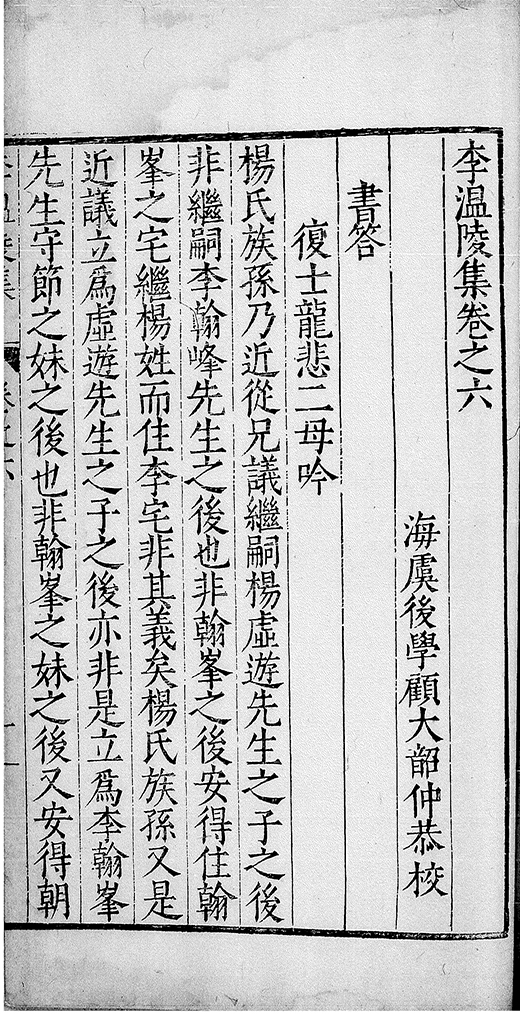 李温陵集卷之六
海虞後學顧大韶仲恭校
書答
復士龍悲二母吟
楊氏族孫乃近從兄議繼嗣楊虛遊先生之子之後
非繼嗣李翰峰先生之後也非翰峯之後安得住翰
峯之宅繼楊姓而住李宅非其義矣楊氏族孫又是
近議立爲虛遊先生之子之後亦非是立爲李翰峯
先生守節之妹之後也非翰峯之妹之後又安得朝
李温陵集 卷之六 一